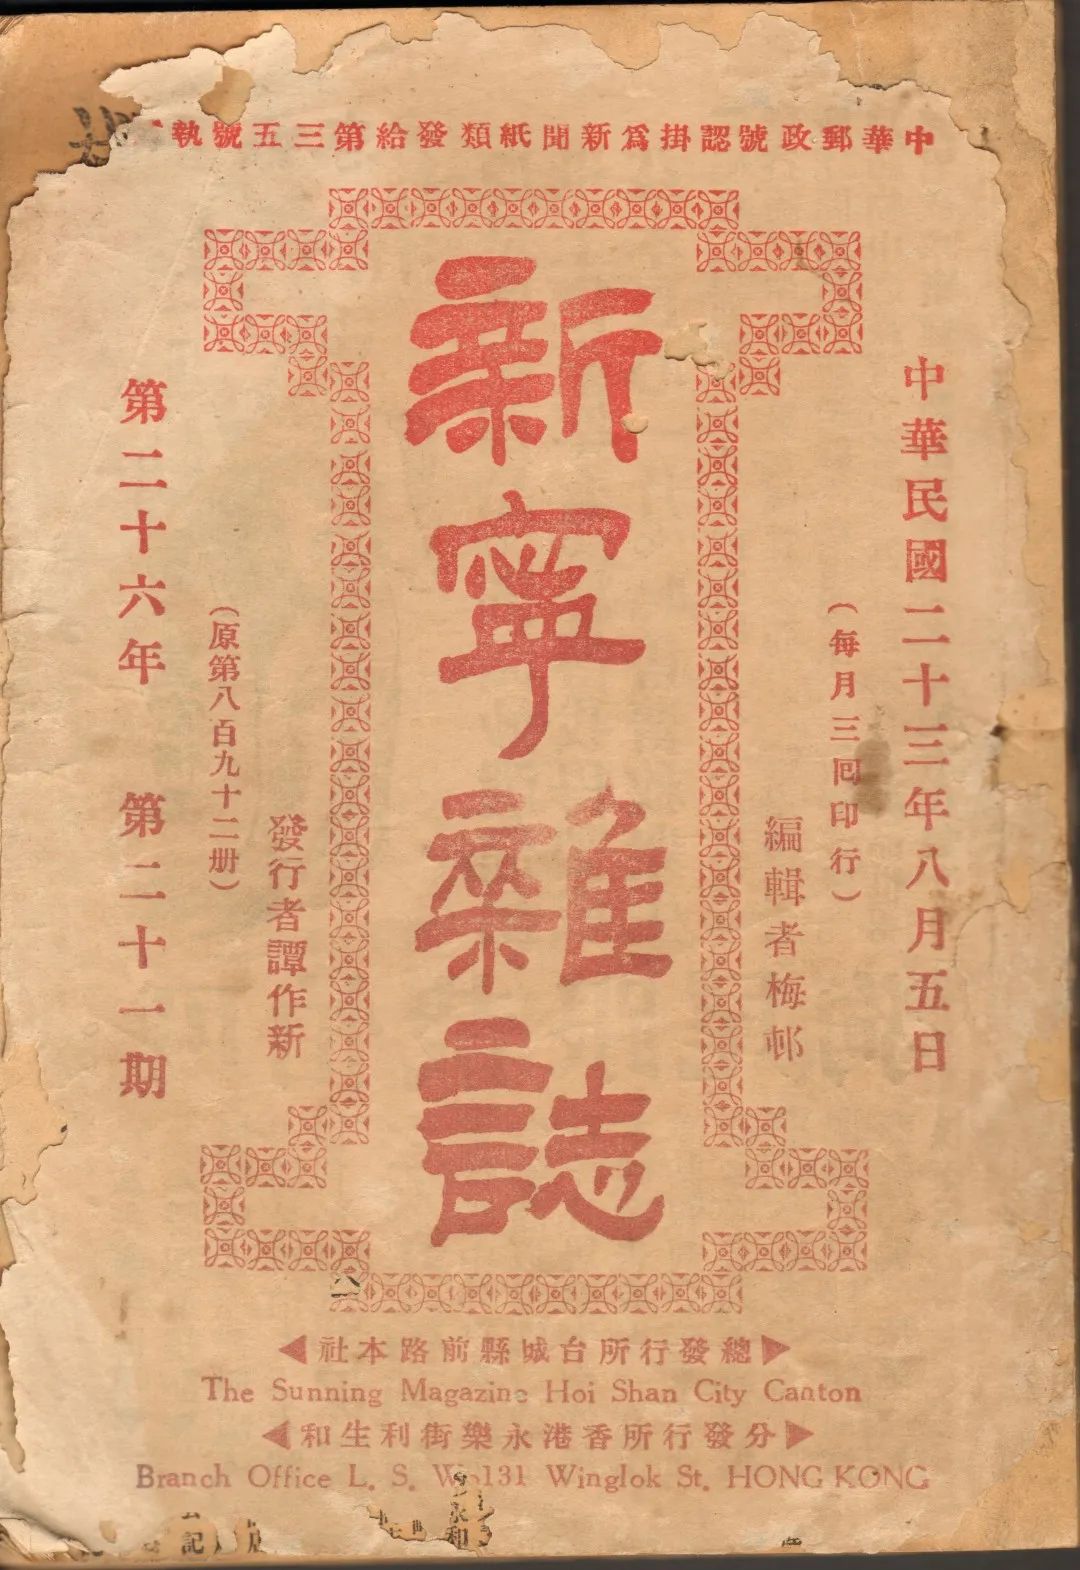 中華郵政號認掛爲新聞紙類發給第三五號執
中華民國二十三年八月五日
(每月三囘印行)
編輯者梅邨
新寧雜誌
發行者譚作新
(原第八百九十二册)
第二十六年 第二十一期
總發行所台城縣前路本社
The Sunning Magazine Hoi Shan City Canton
分發行所香港永樂街利生和
Branch Office L. S. Wo131 Winglok St. HONG KONG
永和
記